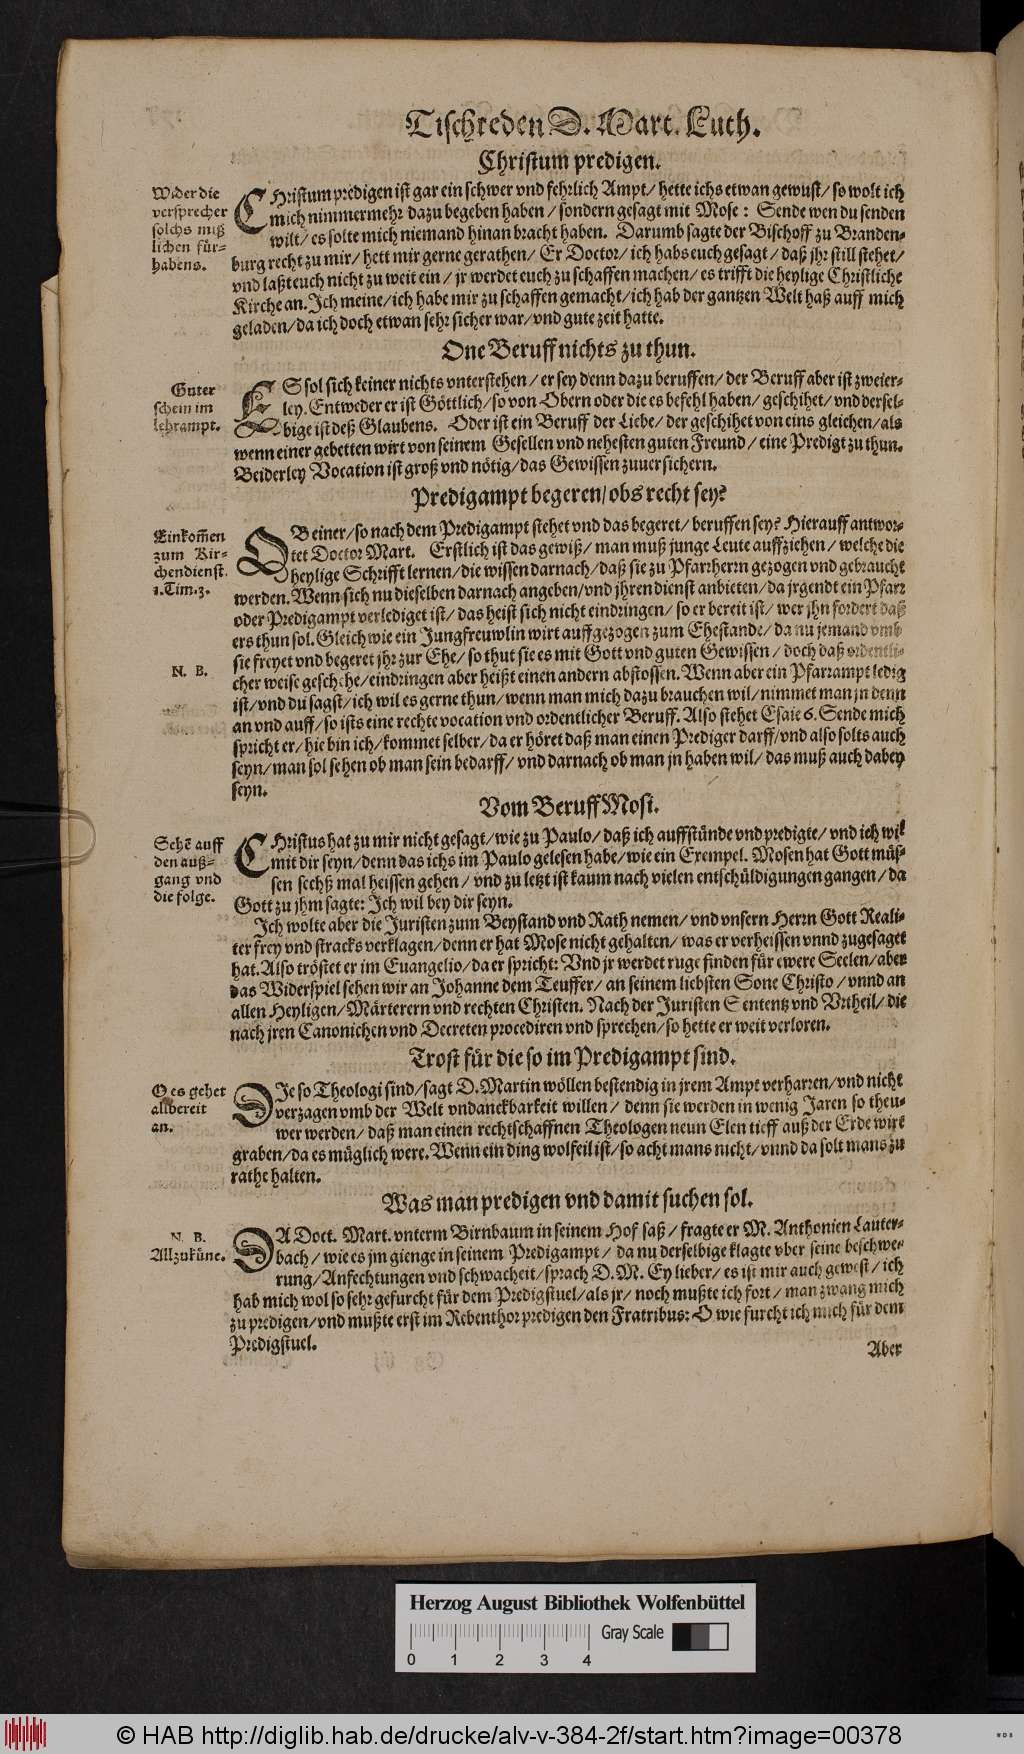 Tischreden D. Mart. Luth.
Christum predigen.
Wider die
versprecher
solchs miß
lichen für-
habens.
CHristum predigen ist gar ein schwer vnd fehrlich Ampt/ hette ichs etwan gewust/ so wolt ich
mich nimmermehr dazu begeben haben/ sondern gesagt mit Mose: Sende wen du senden
wilt/ es solte mich niemand hinan bracht haben. Darumb sagte der Bischoff zu Branden-
burg recht zu mir/ hett mir gerne gerathen/ Er Doctor/ ich habs euch gesagt/ daß jhr still stehet/
vnd laßt euch nicht zu weit ein/ jr werdet euch zu schaffen machen/ es trifft die heylige Christliche
Kirche an. Ich meine/ ich habe mir zu schaffen gemacht/ ich hab der gantzen Welt haß auff mich
geladen/ da ich doch etwan sehr sicher war/ vnd gute zeit hatte.
One Beruff nichts zu thun.
Guter
schein im
lehrampt.
ES sol sich keiner nichts vnterstehen/ er sey denn dazu beruffen/ der Beruff aber ist zweier-
ley. Entweder er ist Göttlich/ so von Obern oder die es befehl haben/ geschihet/ vnd dersel-
bige ist deß Glaubens. Oder ist ein Beruff der Liebe/ der geschihet von eins gleichen/ als
wenn einer gebetten wirt von seinem Gesellen vnd nehesten guten Freund/ eine Predigt zu thun.
Beiderley Vocation ist groß vnd nötig/ das Gewissen zuuersichern.
Predigampt begeren/ obs recht sey?
Einkom̃en
zum Kir-
chendienst.
1.Tim.3.
OB einer/ so nach dem Predigampt stehet vnd das begeret/ beruffen sey? Hierauff antwor-
tet Doctor Mart. Erstlich ist das gewiß/ man muß junge Leute auffziehen/ welche die
heylige Schrifft lernen/ die wissen darnach/ daß sie zu Pfarrherrn gezogen vnd gebraucht
werden. Wenn sich nu dieselben darnach angeben/ vnd jhren dienst anbieten/ da jrgendt ein Pfarr
oder Predigampt verlediget ist/ das heist sich nicht eindringen/ so er bereit ist/ wer jhn fordert daß
ers thun sol. Gleich wie ein Jungfreuwlin wirt auffgezogen zum Ehestande/ da nu jemand vmb
sie freyet vnd begeret jhr zur Ehe/ so thut sie es mit Gott vnd guten Gewissen/ doch daß ordentli-
N. B.
cher weise geschehe/ eindringen aber heißt einen andern abstossen. Wenn aber ein Pfarrampt ledig
ist/ vnd du sagst/ ich wil es gerne thun/ wenn man mich dazu brauchen wil/ nimmet man jn denn
an vnd auff/ so ists eine rechte vocation vnd ordentlicher Beruff. Also stehet Esaie 6. Sende mich
spricht er/ hie bin ich/ kommet selber/ da er höret daß man einen Prediger darff/ vnd also solts auch
seyn/ man sol sehen ob man sein bedarff/ vnd darnach ob man jn haben wil/ das muß auch dabey
seyn.
Vom Beruff Mosi.
Sehẽ auff
den auß-
gang vnd
die folge.
CHristus hat zu mir nicht gesagt/ wie zu Paulo/ daß ich auffstünde vnd predigte/ vnd ich wil
mit dir seyn/ denn das ichs im Paulo gelesen habe/ wie ein Exempel. Mosen hat Gott müs-
sen sechß mal heissen gehen/ vnd zu letzt ist kaum nach vielen entschüldigungen gangen/ da
Gott zu jhm sagte: Ich wil bey dir seyn.
Ich wolte aber die Juristen zum Beystand vnd Rath nemen/ vnd vnsern Herrn Gott Reali-
ter frey vnd stracks verklagen/ denn er hat Mose nicht gehalten/ was er verheissen vnnd zugesaget
hat. Also tröstet er im Euangelio/ da er spricht: Vnd jr werdet ruge finden für ewere Seelen/ aber
das Widerspiel sehen wir an Johanne dem Teuffer/ an seinem liebsten Sone Christo/ vnnd an
allen Heyligen/ Märterern vnd rechten Christen. Nach der Juristen Sententz vnd Vrtheil/ die
nach jren Canonichen vnd Decreten procediren vnd sprechen/ so hette er weit verloren.
Trost für die so im Predigampt sind.
O es gehet
allbereit
an.
DJe so Theologi sind/ sagt D. Martin wöllen bestendig in jrem Ampt verharren/ vnd nicht
verzagen vmb der Welt vndanckbarkeit willen/ denn sie werden in wenig Jaren so theu-
wer werden/ daß man einen rechtschaffnen Theologen neun Elen tieff auß der Erde wirt
graben/ da es müglich were. Wenn ein ding wolfeil ist/ so acht mans nicht/ vnnd da solt mans zu
rathe halten.
Was man predigen vnd damit suchen sol.
N. B.
Allzuküne.
DA Doct. Mart. vnterm Birnbaum in seinem Hof saß/ fragte er M. Anthonien Lauter-
bach/ wie es jm gienge in seinem Predigampt/ da nu derselbige klagte vber seine beschwe-
rung/ Anfechtungen vnd schwacheit/ sprach D. M. Ey lieber/ es ist mir auch gewest/ ich
hab mich wol so sehr gefurcht für dem Predigstuel/ als jr/ noch mußte ich fort/ man zwang mich
zu predigen/ vnd mußte erst im Rebenthor predigen den Fratribus: O wie furcht ich mich für dem
Predigstuel.
Aber
Herzog August Bibliothek Wolfenbüttel
Gray Scale
0 1 2 3 4
© HAB http://diglib.hab.de/drucke/alv-v-384-2f/start.htm?image=00378